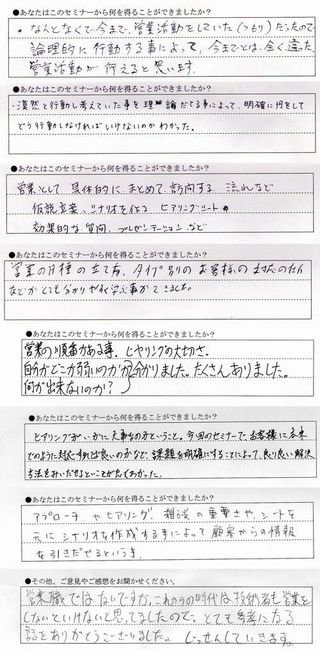 ●あなたはこのセミナーから何を得ることができましたか？
・なんとなくで今まで、営業活動をしていた(つもり)だったので
論理的に行動する事によって、今までとは、全く違った
営業活動が行えると思います。
●あなたはこのセミナーから何を得ることができましたか？
・漠然と行動し考えていた事を理論だてる事によって、明確に何をして
どう行動しなければいけないのかわかった。
●あなたはこのセミナーから何を得ることができましたか？
営業として、具体的に、まとめて、訪問する流れなど
仮説立案、シナリオを作る ヒアリングシートの
効果的な質問、プレゼンテーションなど
●あなたはこのセミナーから何を得ることができましたか？
営業の目標の立て方、タイプ別のお客様の対応のしかた
などがとても分かりやすく学ぶ事ができました。
●あなたはこのセミナーから何を得ることができましたか？
営業の順番がある事、ヒヤリングの大切さ。
自分がどこが弱いのかが分かりました。たくさんありました。
何が出来ないのか？
●あなたはこのセミナーから何を得ることができましたか？
ヒアリングがいかに大事なのかということ。今回のセミナーで、お客様に今まで
どのように対応すれば良いのかなど、課題を明確にすることによって、より良い解決
方法をみいだせるということが良くわかった。
●あなたはこのセミナーから何を得ることができましたか？
アプローチやヒアリング、想談の重要さや、シートを
元にシナリオを作成する事によって顧客からの情報
を引きだせるという事。
●その他、ご意見やご感想をお聞かせください。
営業職ではないですが、これからの時代は技術者も営業を
しないといけないと思ってましたので、とても参考になる
話をありがとうございました。じっせんしていきます。